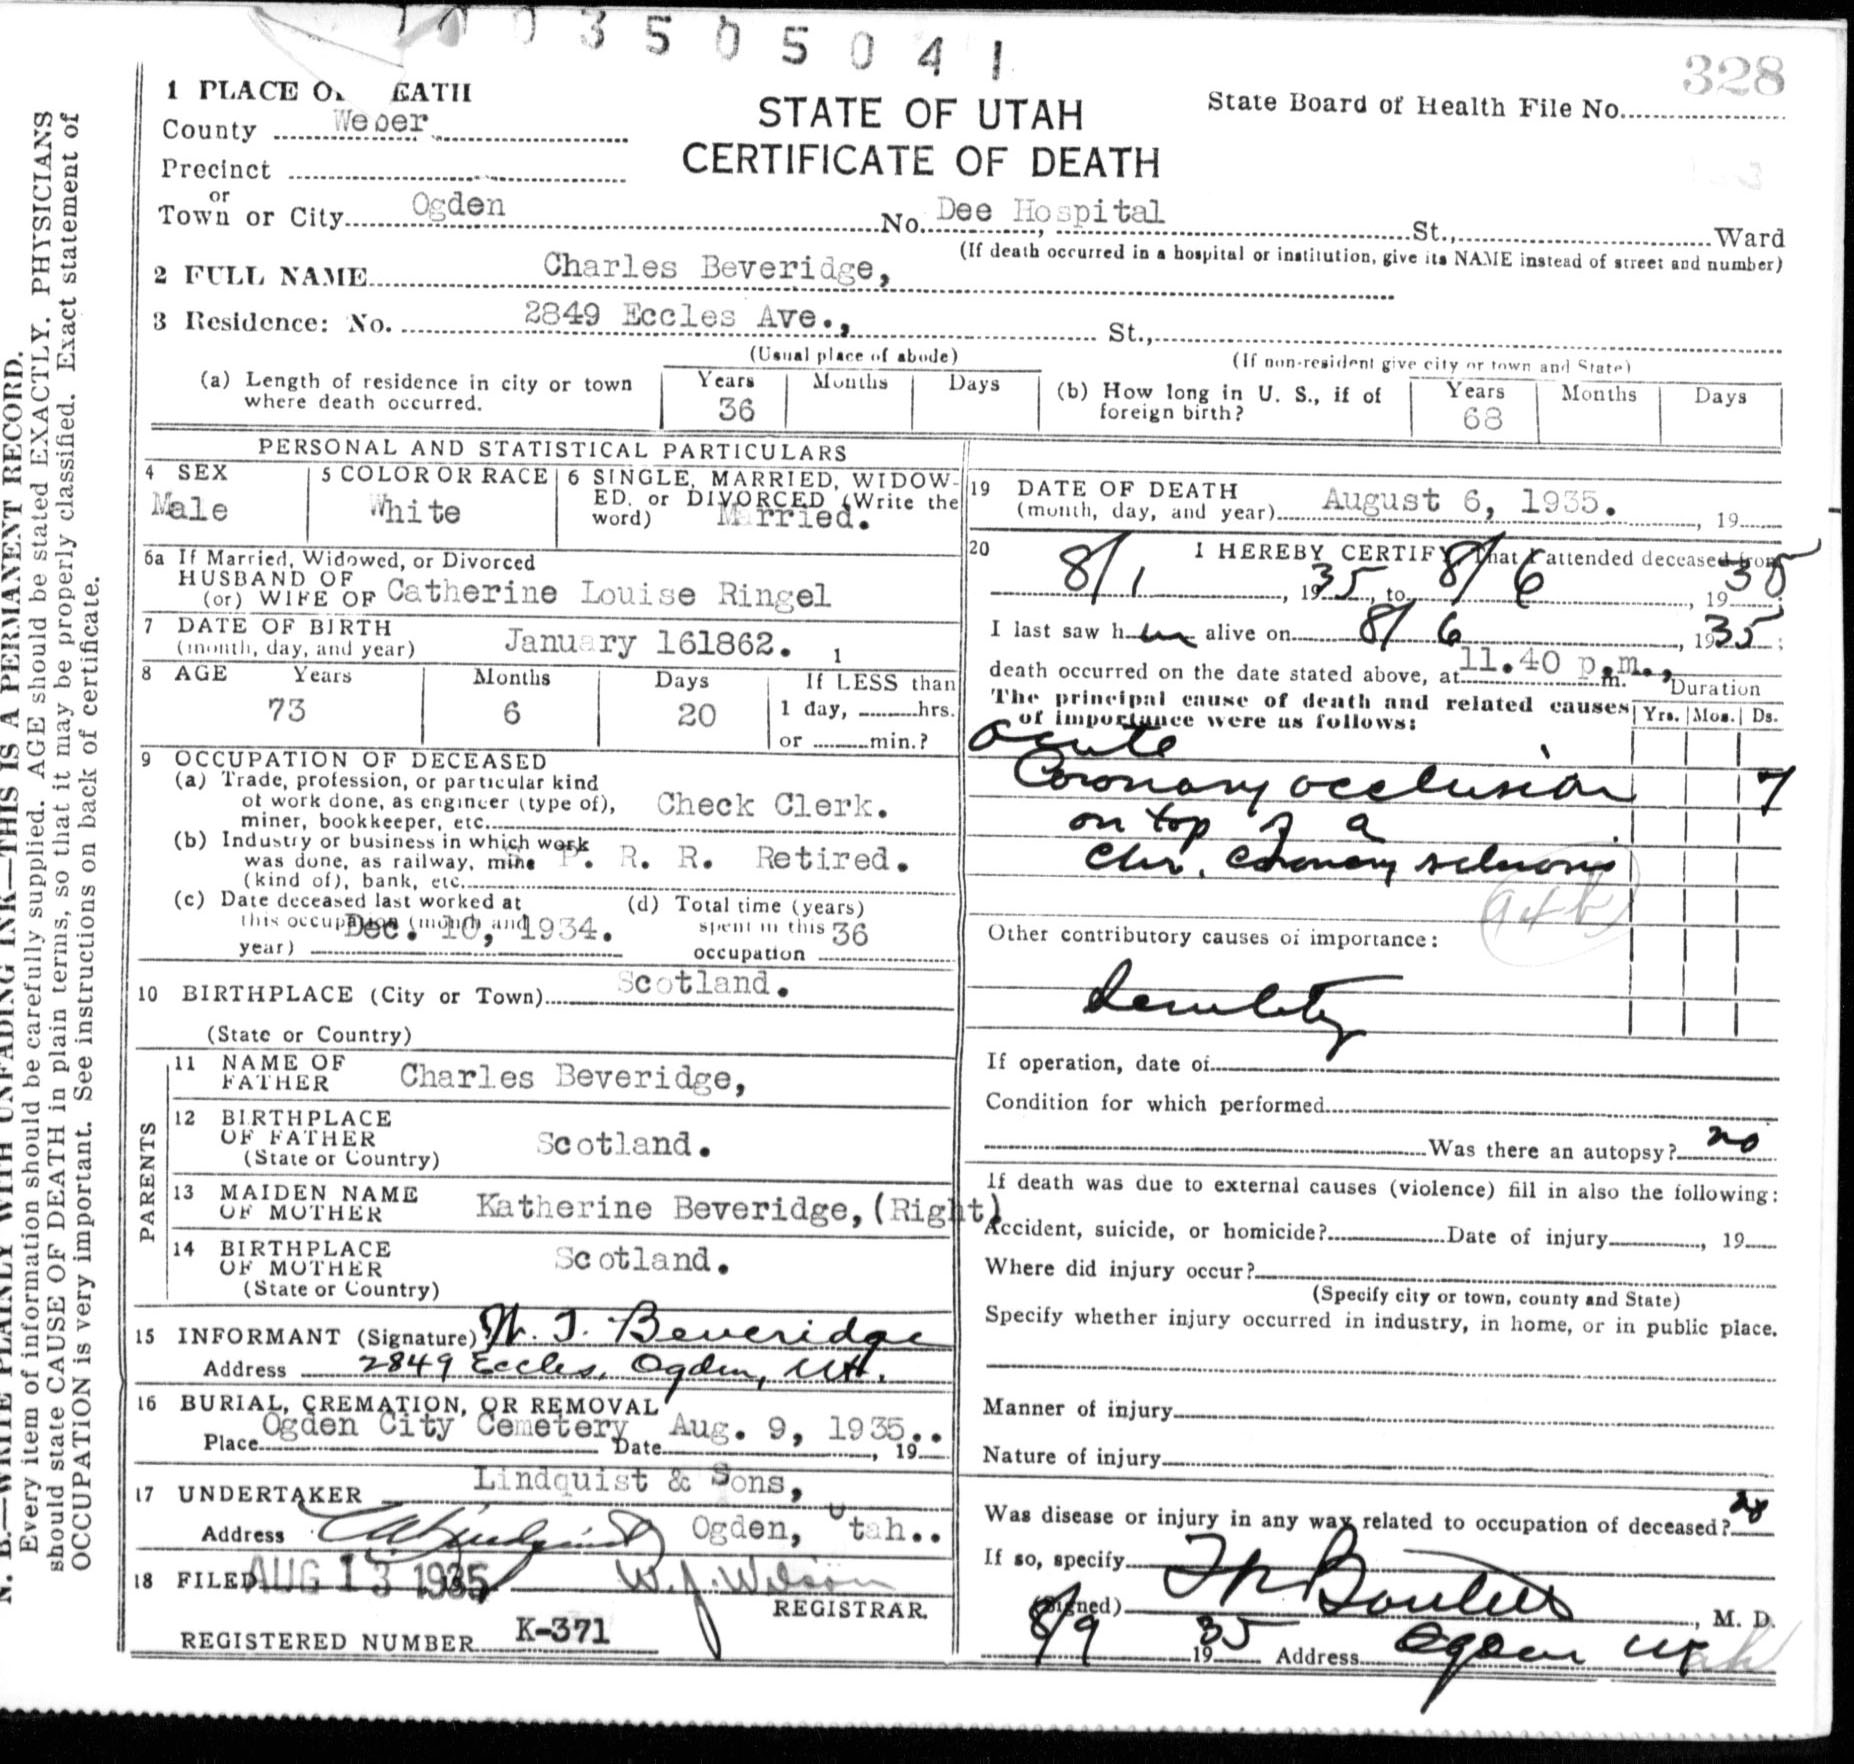 3505041
328
1 PLACE OF DEATH
STATE OF UTAH
State Board of Health File No.
County Weber
CERTIFICATE OF DEATH
Precinct
or
Town or City Ogden No. Dee Hospital St., Ward
(If death occurred in a hospital or institution, give its NAME instead of street and number)
2 FULL NAME Charles Beveridge,
3 Residence: No. 2849 Eccles Ave., St.,
(Usual place of abode) (If non-resident give city or town and State)
(a) Length of residence in city or town where death occurred. Years 36 Months Days
(b) How long in U. S., if of foreign birth? Years 68 Months Days
PERSONAL AND STATISTICAL PARTICULARS
4 SEX
Male
5 COLOR OR RACE
White
6 SINGLE, MARRIED, WIDOW-
ED. or DIVORCED (Write the
word) Married.
6a If Married, Widowed, or Divorced
HUSBAND OF
(or) WIFE OF Catherine Louise Ringel
7 DATE OF BIRTH
(month, day, and year) January 161862. 1
8 AGE Years Months Days If LESS than
73 6 20 1 day, hrs.
or min.?
9 OCCUPATION OF DECEASED
(a) Trade, profession, or particular kind
of work done, as engineer (type of),
miner, bookkeeper, etc. Check Clerk.
(b) Industry or business in which work
was done, as railway, mine P. R. R. Retired.
(kind of), bank, etc.
(c) Date deceased last worked at
this occupation (month and
year) Dec. 10, 1934.
(d) Total time (years)
spent in this 36
occupation
10 BIRTHPLACE (City or Town) Scotland.
(State or Country)
PARENTS
11 NAME OF
FATHER Charles Beveridge,
12 BIRTHPLACE
OF FATHER Scotland.
(State or Country)
13 MAIDEN NAME
OF MOTHER Katherine Beveridge, (Right)
14 BIRTHPLACE
OF MOTHER Scotland.
(State or Country)
15 INFORMANT (Signature) W. J. Beveridge
Address 2849 Eccles, Ogden, Ut.
16 BURIAL, CREMATION, OR REMOVAL
Place Ogden City Cemetery Date Aug. 9, 1935.. , 19
17 UNDERTAKER Lindquist & Sons,
Address Ogden, Utah..
18 FILED AUG 13 1935 W. J. Wilson
REGISTRAR.
REGISTERED NUMBER K-371
19 DATE OF DEATH
(month, day, and year) August 6, 1935. , 19
20 I HEREBY CERTIFY, That I attended deceased from
8/1, 1935, to 8/6, 1935;
I last saw him alive on 8/6, 1935;
death occurred on the date stated above, at 11.40 p.m., m.
The principal cause of death and related causes
of importance were as follows:
Duration
Yrs. Mos. Ds.
Acute
Coronary occlusion 7
on top of a
Chr. Coronary sclerosis
Other contributory causes of importance:
Senility
If operation, date of
Condition for which performed
Was there an autopsy? no
If death was due to external causes (violence) fill in also the following:
Accident, suicide, or homicide? Date of injury , 19
Where did injury occur?
(Specify city or town, county and State)
Specify whether injury occurred in industry, in home, or in public place.
Manner of injury
Nature of injury
Was disease or injury in any way related to occupation of deceased? no
If so, specify
(Signed) , M. D.
8/9 1935 Address Ogden Utah
N. B.—WRITE PLAINLY WITH UNFADING INK—THIS IS A PERMANENT RECORD.
Every item of information should be carefully supplied. AGE should be stated EXACTLY. PHYSICIANS
should state CAUSE OF DEATH in plain terms, so that it may be properly classified. Exact statement of
OCCUPATION is very important. See instructions on back of certificate.